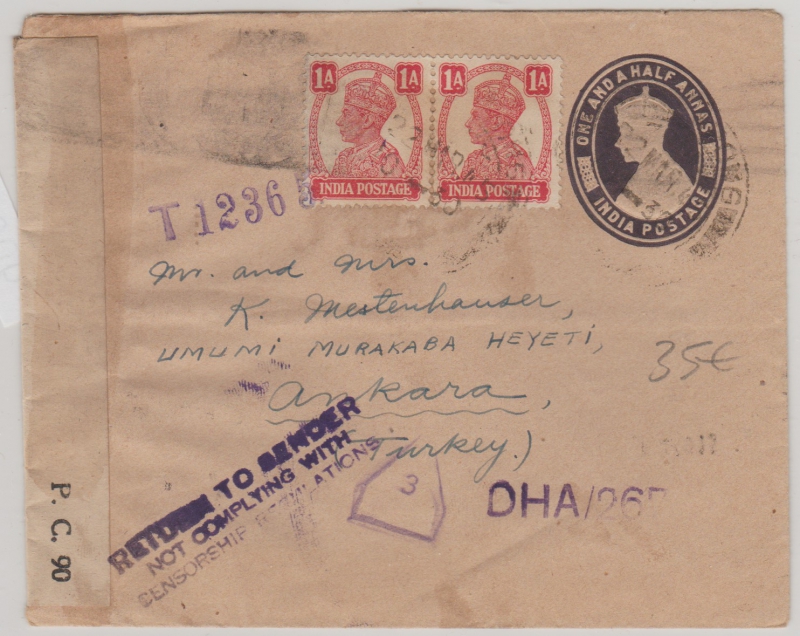 1A 1A
INDIA POSTAGE
1A 1A
INDIA POSTAGE
ONE AND A HALF ANNAS
INDIA POSTAGE
T 12365
Mr. and Mrs.
K. Mestenhauser,
UMUMİ MURAKABA HEYETİ,
35€
Ankara,
(Turkey.)
RETURN TO SENDER
NOT COMPLYING WITH
CENSORSHIP REGULATIONS
3
DHA/265
P. C. 90